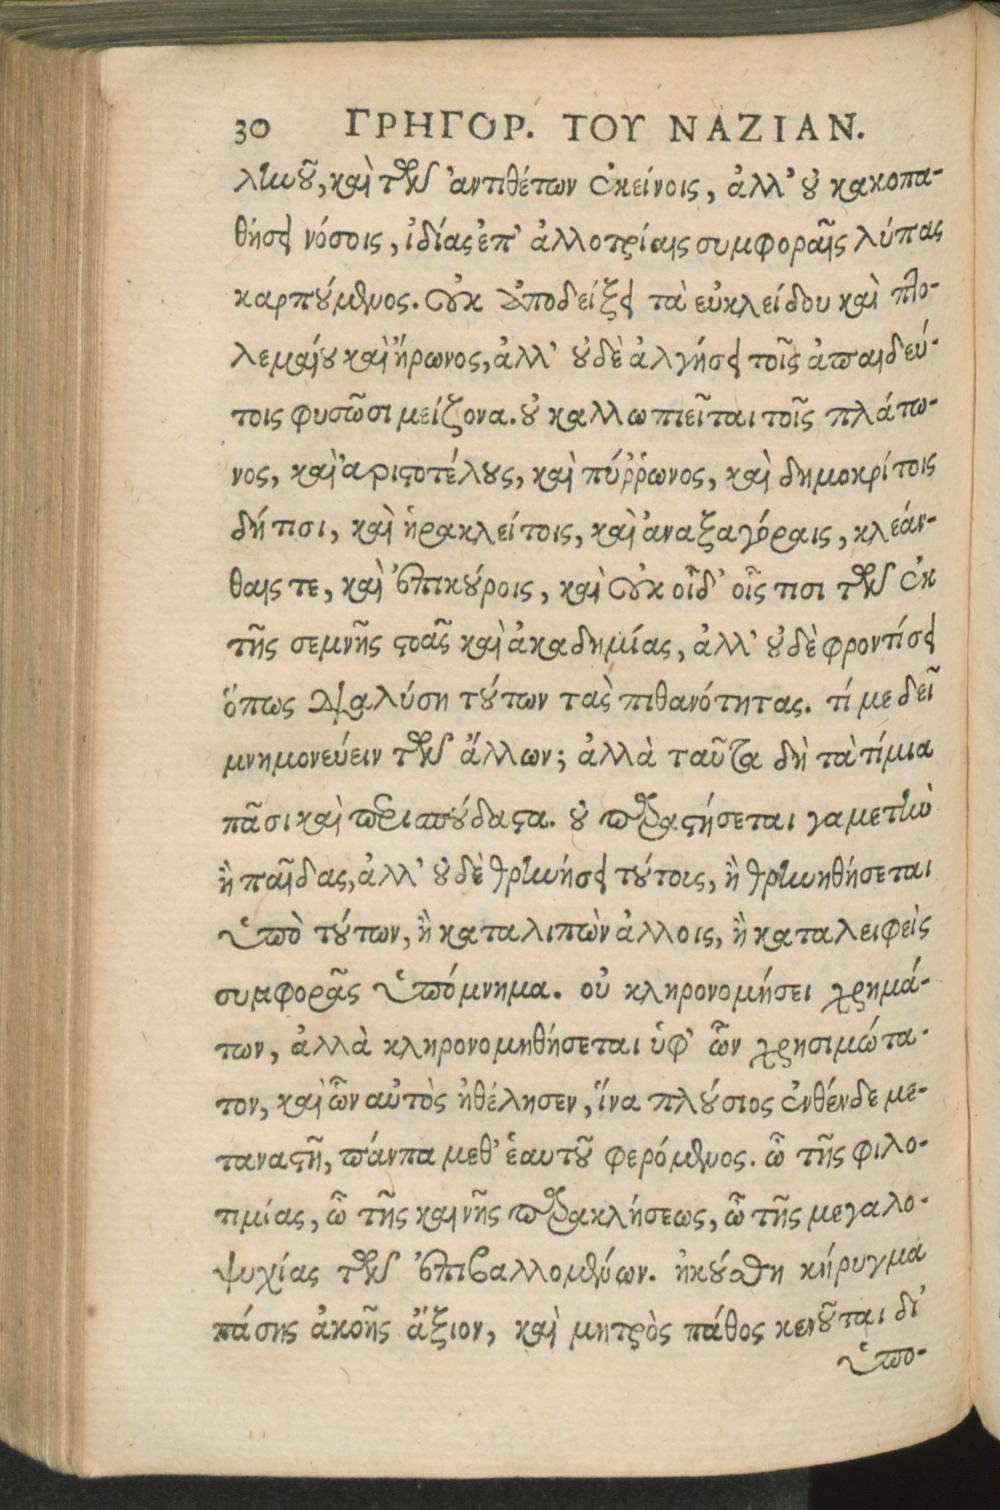 30 ΓΡΗΓΟΡ. ΤΟΥ ΝΑΖΙΑΝ.
ληνοῦ, καὶ τῶν ἀντιθέτων ἐκείνοις, ἀλλ' οὐ κακοπα-
θήσει νόσοις, ἰδίας ἐπ' ἀλλοτρίαις συμφοραῖς λύπας
καρπούμενος. Οὐκ ἀποδείξει τὰ εὐκλείδου καὶ πτο-
λεμαίου καὶ ἥρωνος, ἀλλ' οὐδὲ ἀλγήσει τοῖς ἀπαιδεύ-
τοις φυσῶσι μείζονα. οὐ καλλωπιεῖται τοῖς πλάτω-
νος, καὶ ἀριστοτέλους, καὶ πύῤῥωνος, καὶ δημοκρίτοις
δή τισι, καὶ ἡρακλείτοις, καὶ ἀναξαγόραις, κλεάν-
θαις τε, καὶ ἐπικούροις, καὶ οὐκ οἶδ' οἷς τισι τῶν ἐκ
τῆς σεμνῆς στοᾶς καὶ ἀκαδημίας, ἀλλ' οὐδὲ φροντίσει
ὅπως διαλύση τούτων τὰς πιθανότητας. τί με δεῖ
μνημονεύειν τῶν ἄλλων; ἀλλὰ ταῦτα δὴ τὰ τίμια
πᾶσι καὶ περισπούδαστα. οὐ παραστήσεται γαμετὴν
ἢ παῖδας, ἀλλ' οὐδὲ θρηνήσει τούτοις, ἢ θρηνηθήσεται
ὑπὸ τούτων, ἢ καταλιπὼν ἄλλοις, ἢ καταλειφεὶς
συμφορᾶς ὑπόμνημα. οὐ κληρονομήσει χρημά-
των, ἀλλὰ κληρονομηθήσεται ὑφ' ὧν χρησιμώτα-
τον, καὶ ὧν αὐτὸς ἠθέλησεν, ἵνα πλούσιος ἐνθένδε με-
ταναστῇ, πάντα μεθ' ἑαυτοῦ φερόμενος. ὦ τῆς φιλο-
τιμίας, ὦ τῆς καινῆς παρακλήσεως, ὦ τῆς μεγαλο-
ψυχίας τῶν ἐπιβαλλομένων. ἠκούσθη κήρυγμα
πάσης ἀκοῆς ἄξιον, καὶ μητρὸς πάθος κενοῦται δι'
ὑπο-